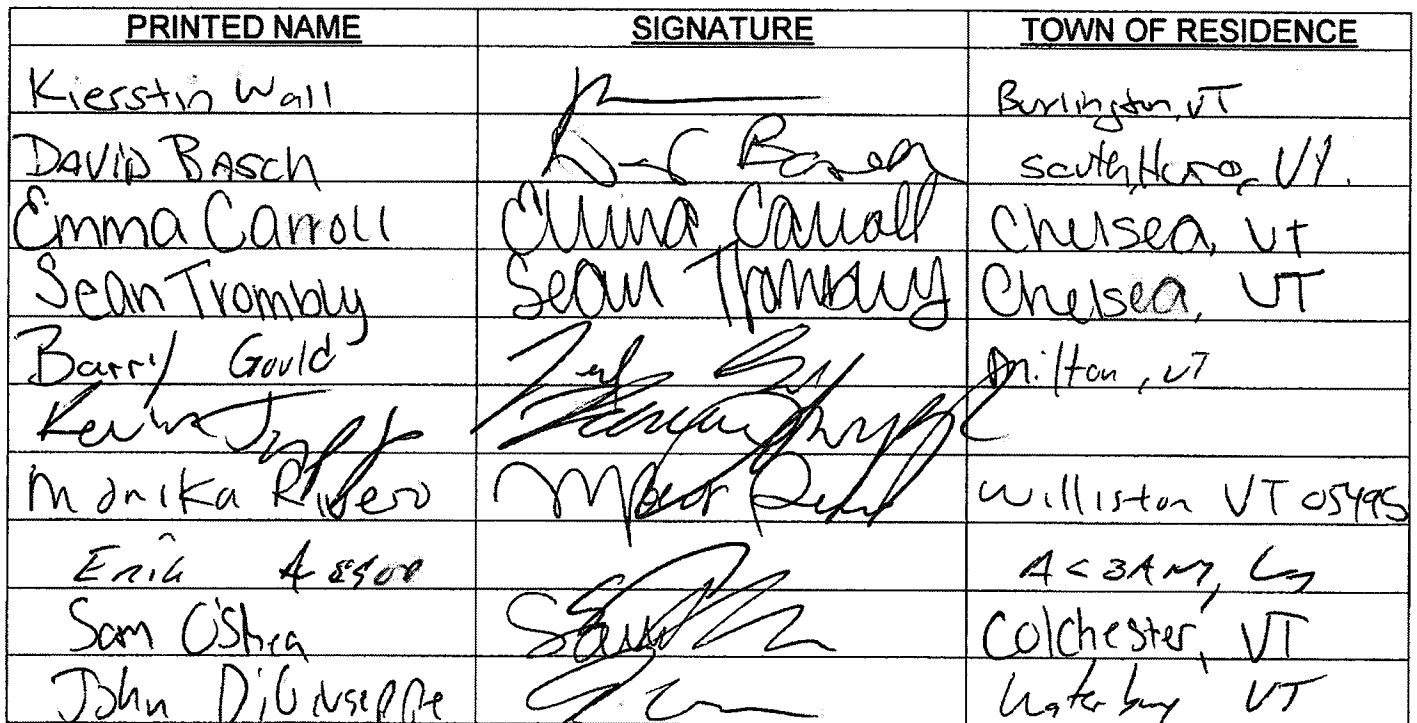 PRINTED NAME SIGNATURE TOWN OF RESIDENCE
Kierstin Wall Burlington, VT
DAVID BASCH South Hero, VT.
Emma Carroll Emma Carroll Chelsea, VT
Sean Trombly Sean Trombly Chelsea, VT
Barry Gould Milton, VT
Kevin
Monika Rivero Williston VT 05495
Erik ALBANY,
Sam O'Shea Sam Colchester, VT
John DiGiuseppe Waterbury VT